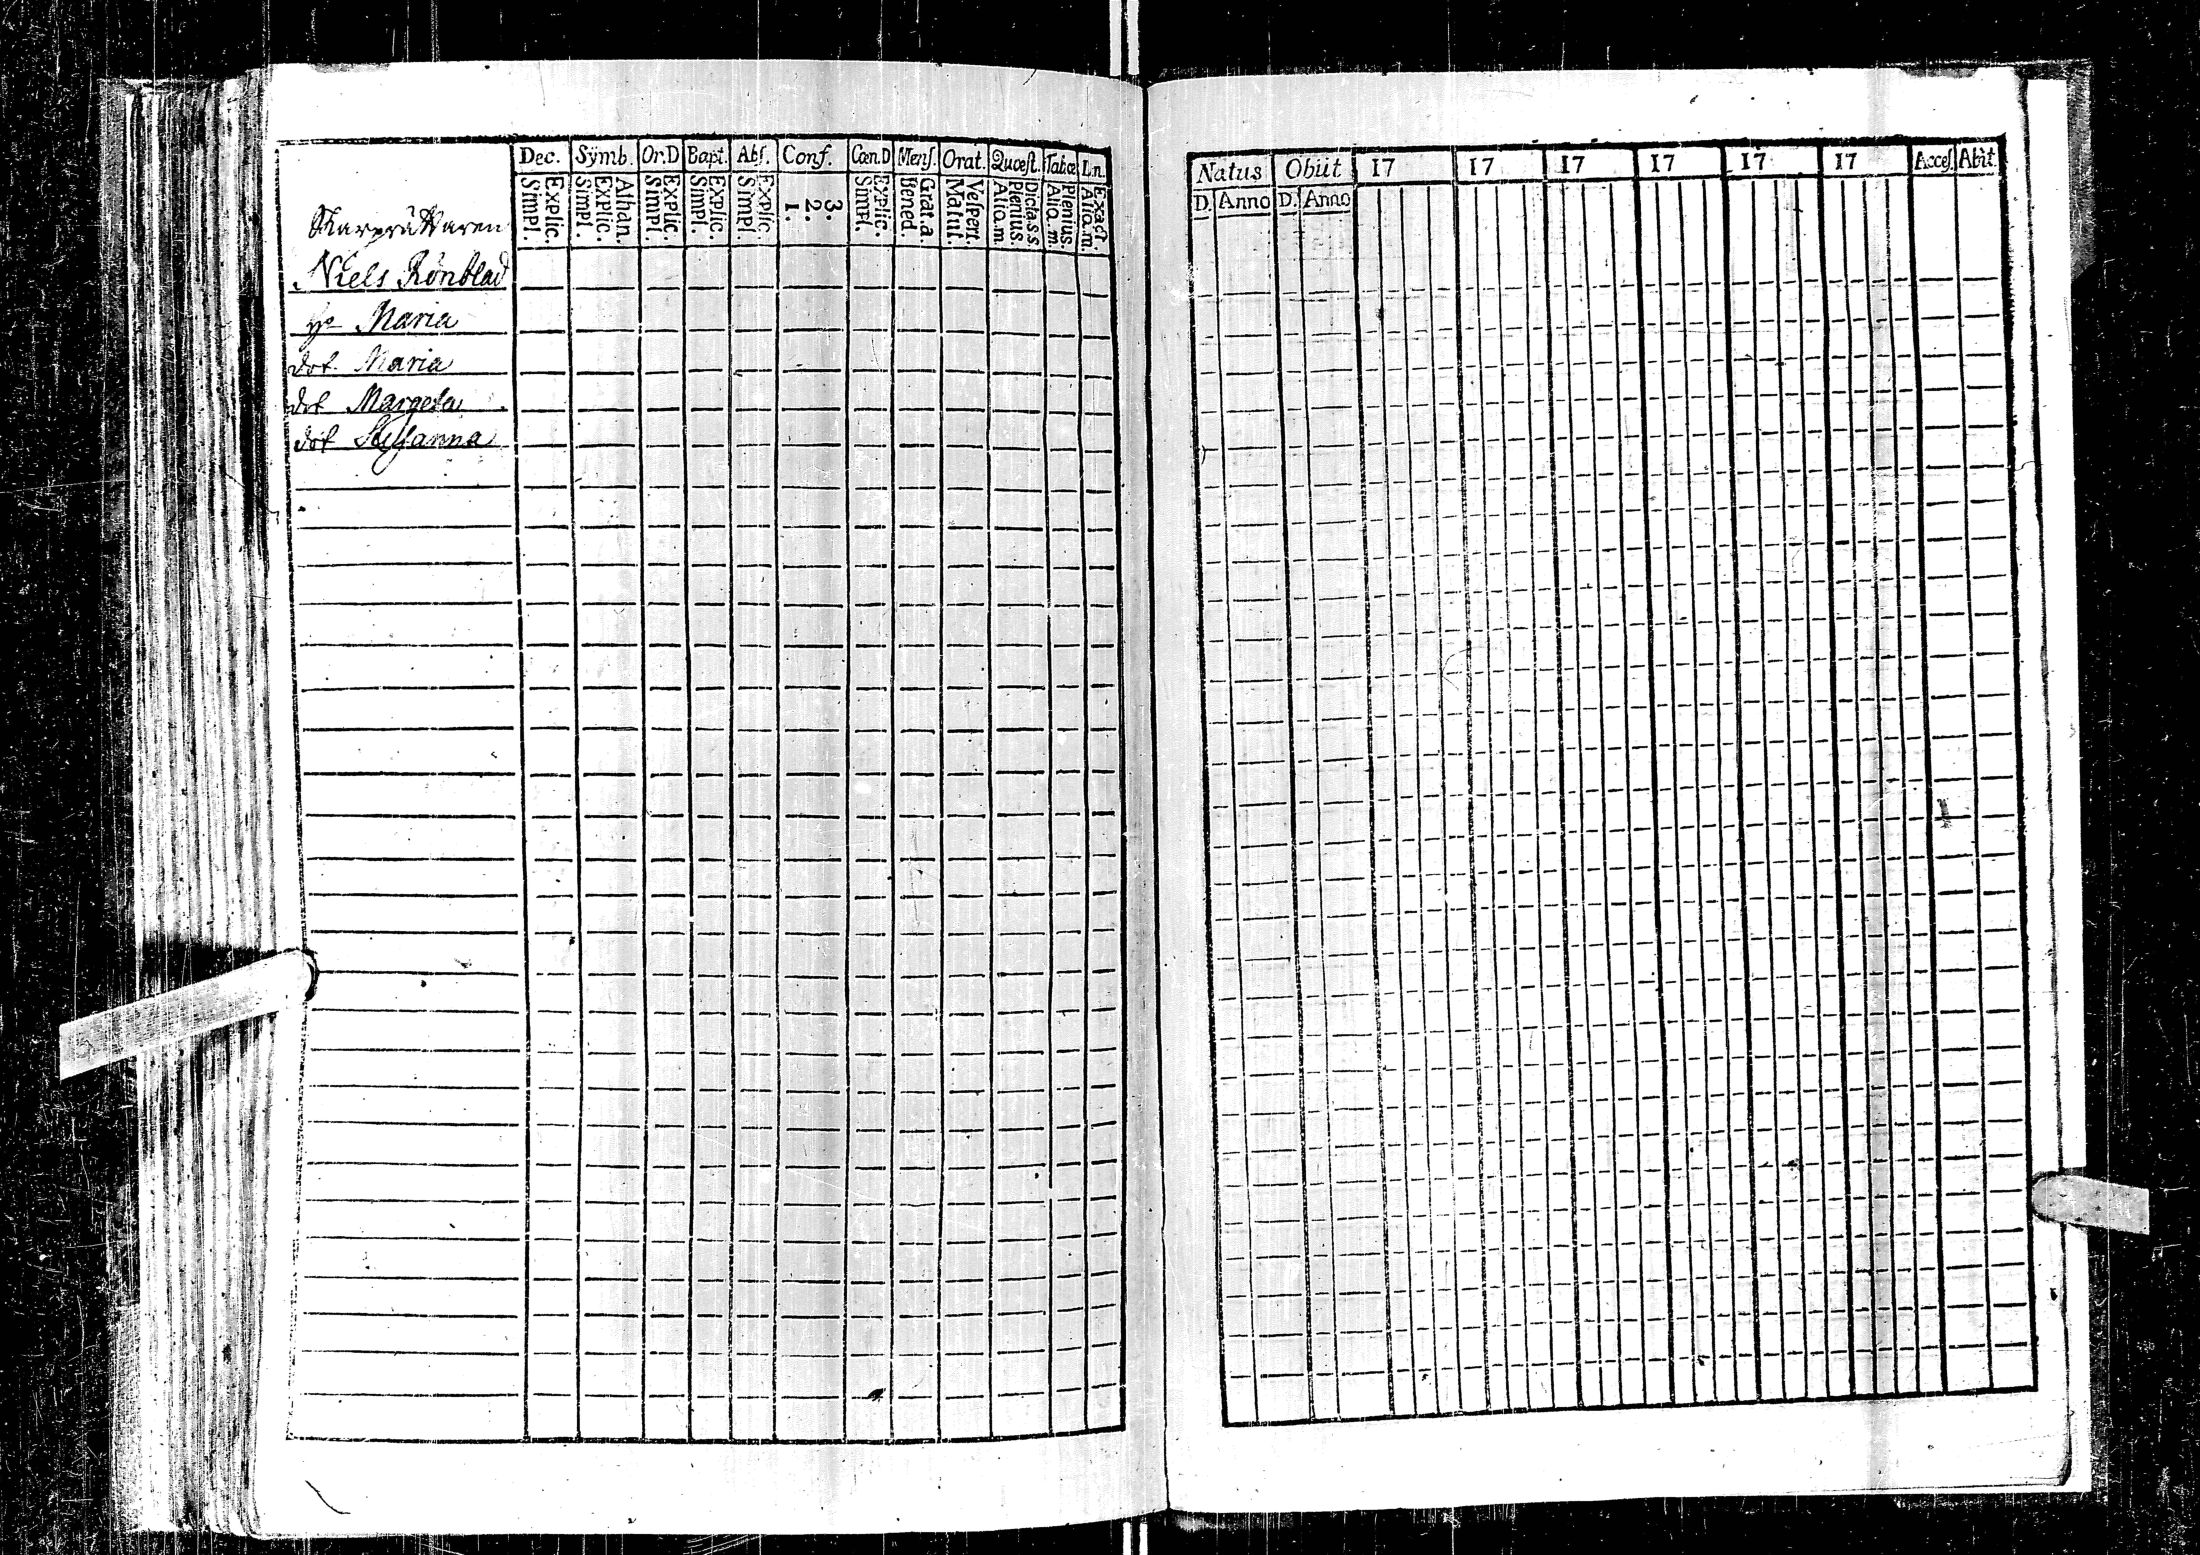 Dec. Sÿmb. Or.D Bapt. Abſ. Conf. Cœn.D Menſ. Orat. Quæſt. Tabulæ L.n.
Simpl. Explic. Simpl. Explic. Athan. Simpl. Explic. Simpl. Explic. Simpl. Explic. 1. 2. 3. Simpl. Explic. Bened. Grat.a. Matut. Veſpert. Aliq.m. Plenius. Dicta.s.s Aliq.m. Plenius. Aliq.m. Exact.
Niels Rönblad
ho Maria
dot. Maria
dot Margeta
dot Susanna
Natus Obiit 17 17 17 17 17 17 Acceſ. Abit.
D. Anno D. Anno